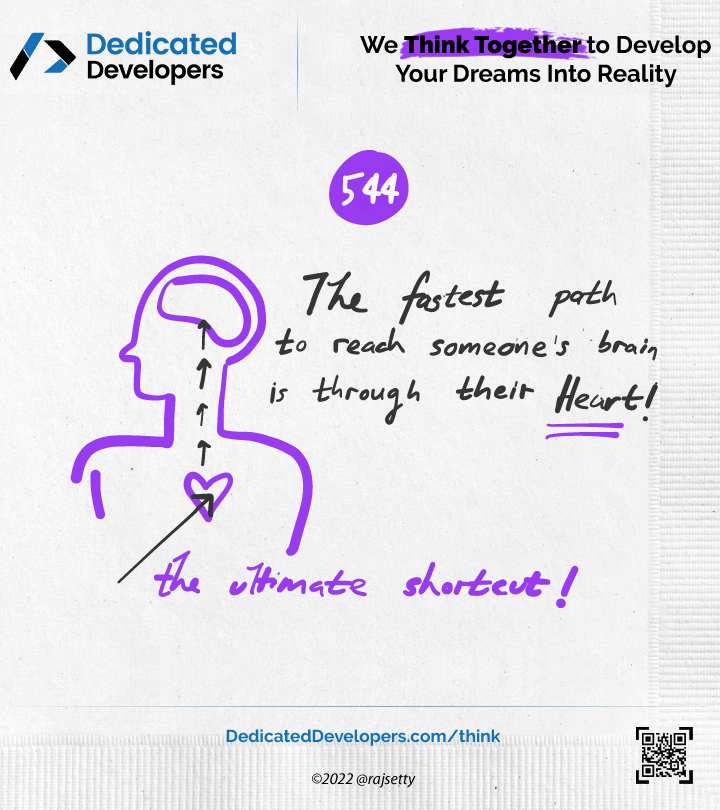 Dedicated
Developers
We Think Together to Develop
Your Dreams Into Reality
544
The fastest path
to reach someone's brain
is through their Heart!
the ultimate shortcut!
DedicatedDevelopers.com/think
©2022 @rajsetty